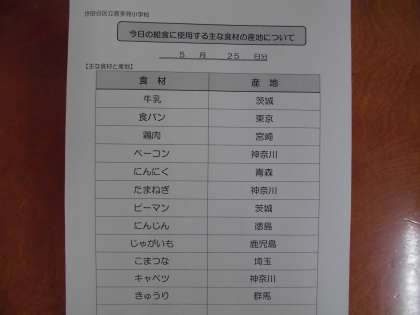 世田谷区立喜多見小学校
今日の給食に使用する主な食材の産地について
5 月 25 日分
【主な食材と産地】
食 材 産 地
牛乳 茨城
食パン 東京
鶏肉 宮崎
ベーコン 神奈川
にんにく 青森
たまねぎ 神奈川
ピーマン 茨城
にんじん 徳島
じゃがいも 鹿児島
こまつな 埼玉
キャベツ 神奈川
きゅうり 群馬